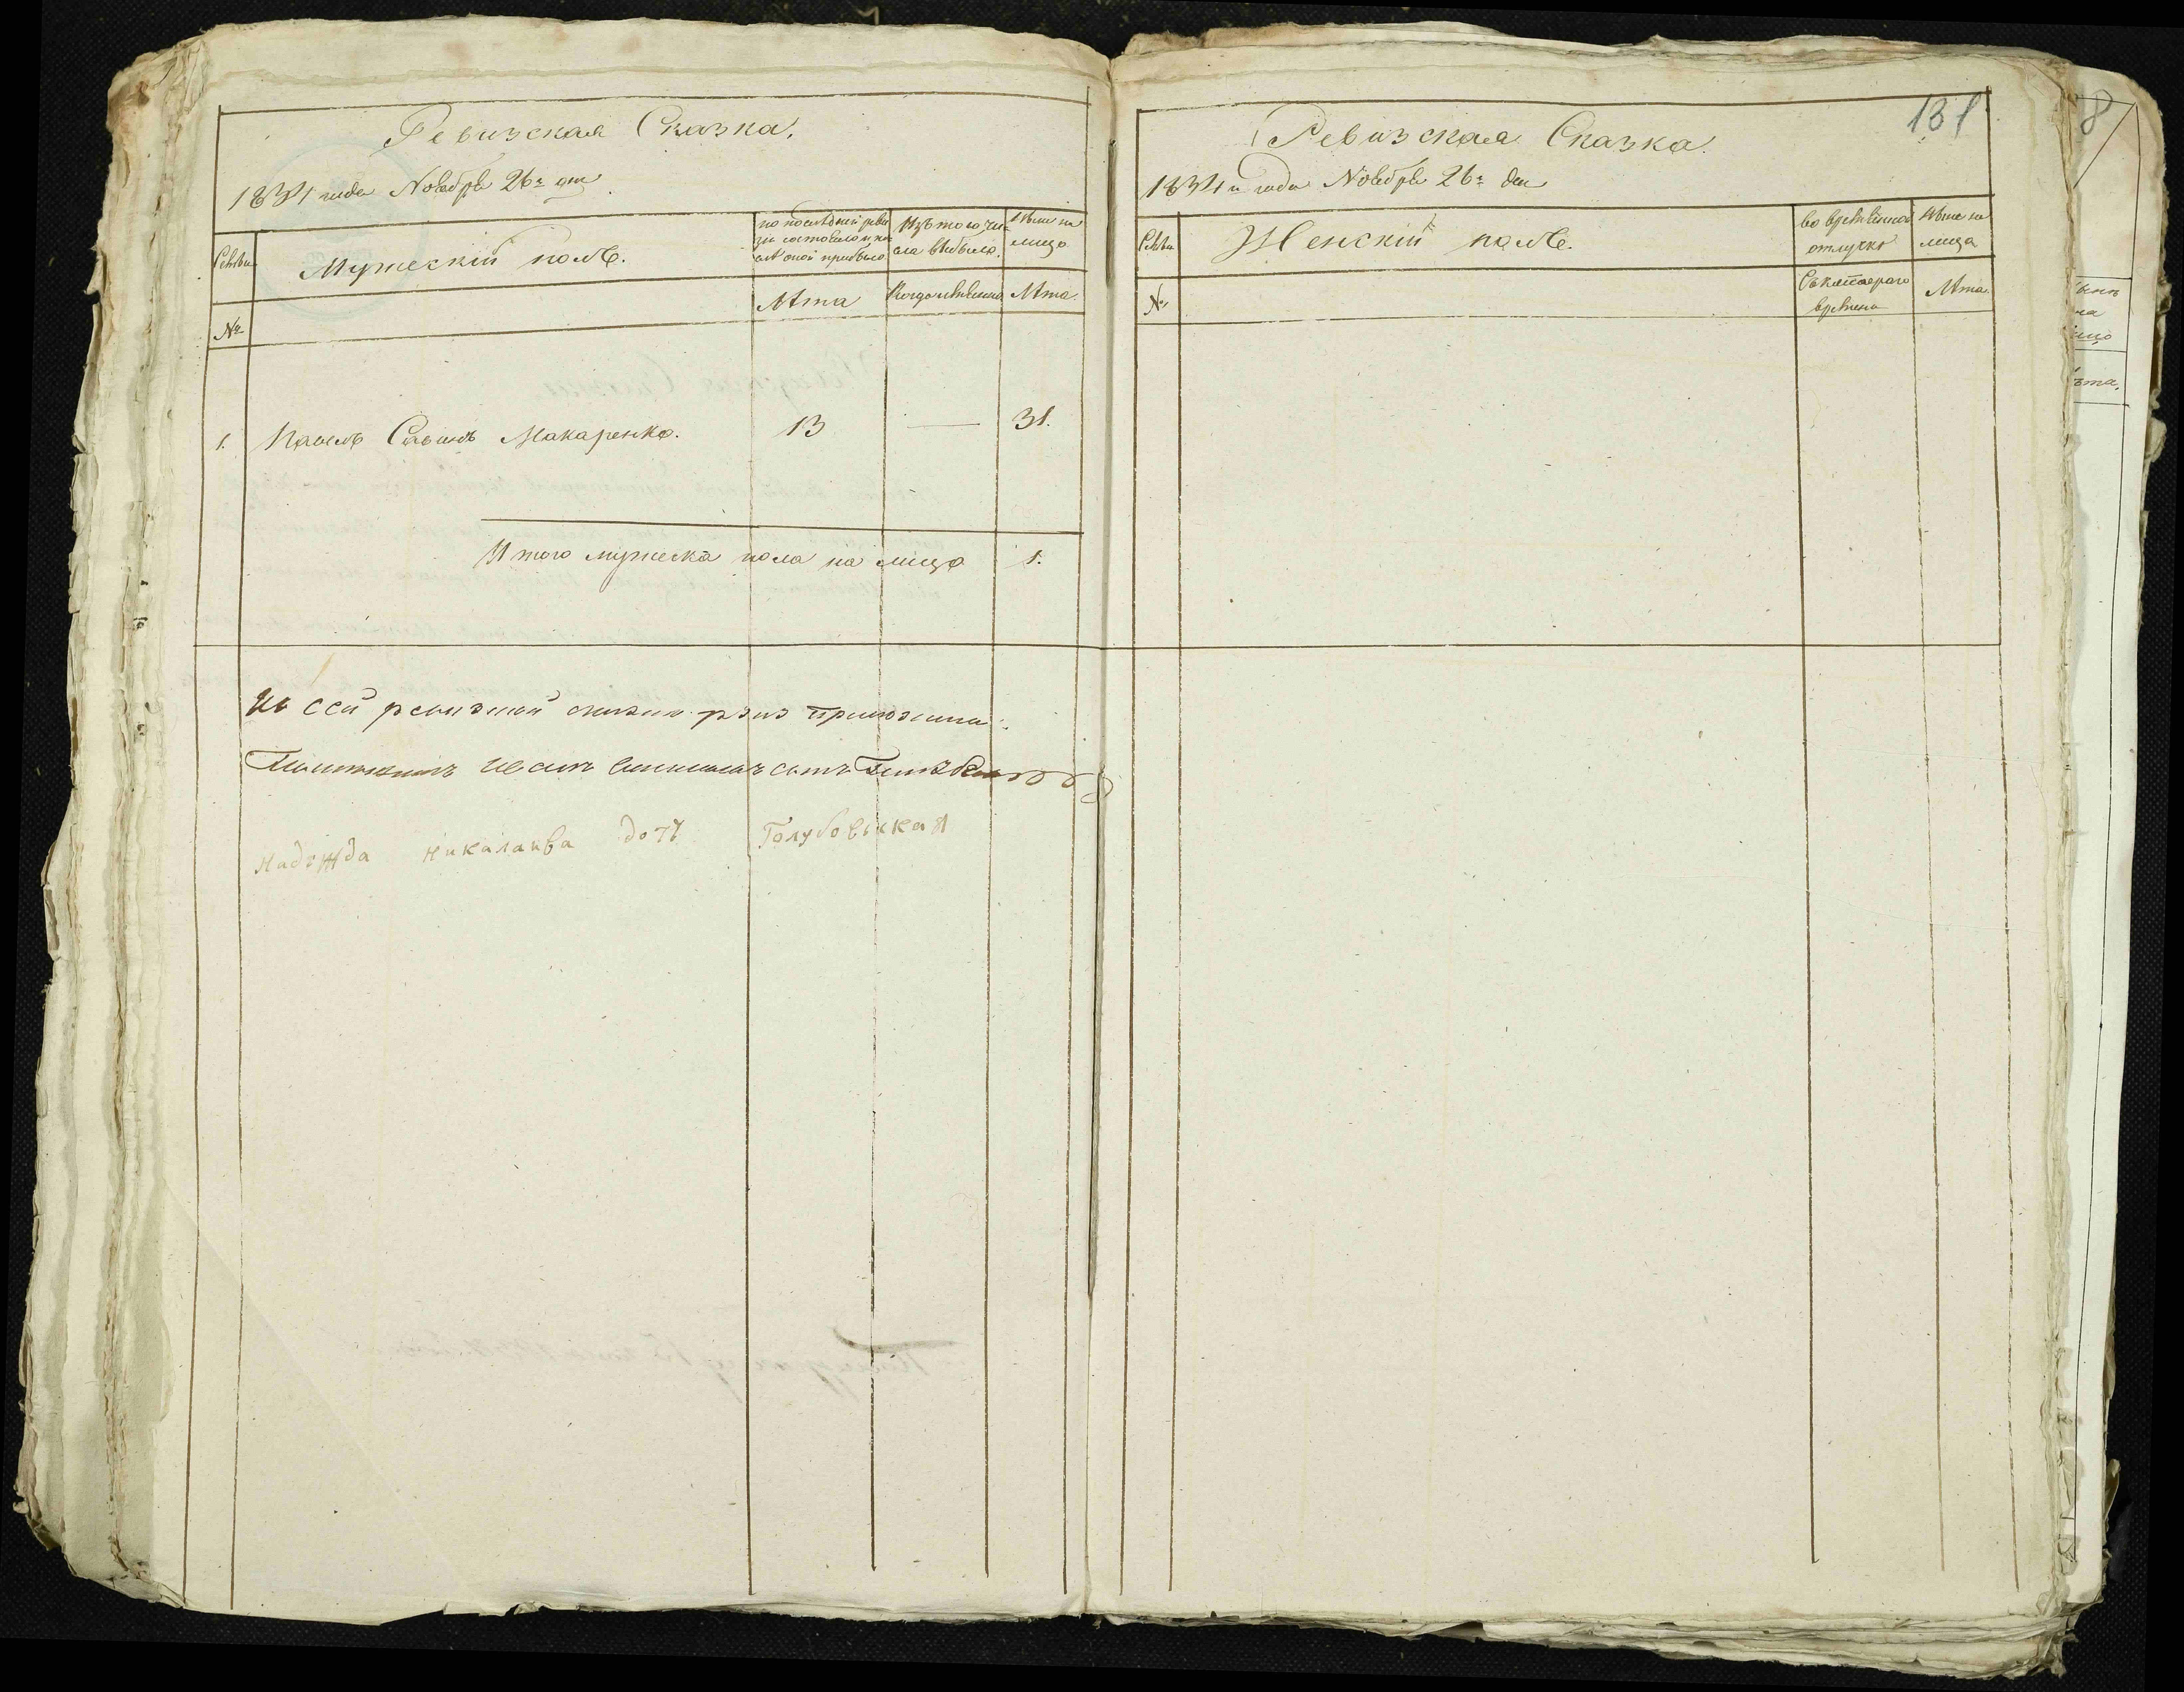 Ревизская Сказка.
1834 года Ноября 26го дня
Семьи
Мужескій полъ.
по последней реви
зіи состояло и по
слѣ оной прибыло
Изъ того чи-
сла выбыло.
Нынѣ на
лицо
№
Лѣта
Когда именно
Лѣта.
1. Павелъ Савинъ Макаренко. 13 — 31.
Итого мужеска пола на лицо 1.
Къ сей ревизкой сказки приложили
Иванъ сынъ
Надѣжда Никалаива дочь Голубовьская
131
Ревизская Сказка.
1834го года Ноября 26го дня
Семьи
Женскій полъ.
во временной
отлучкѣ
Нынѣ на
лицо
№
Съ котораго
времени
Лѣта.
8